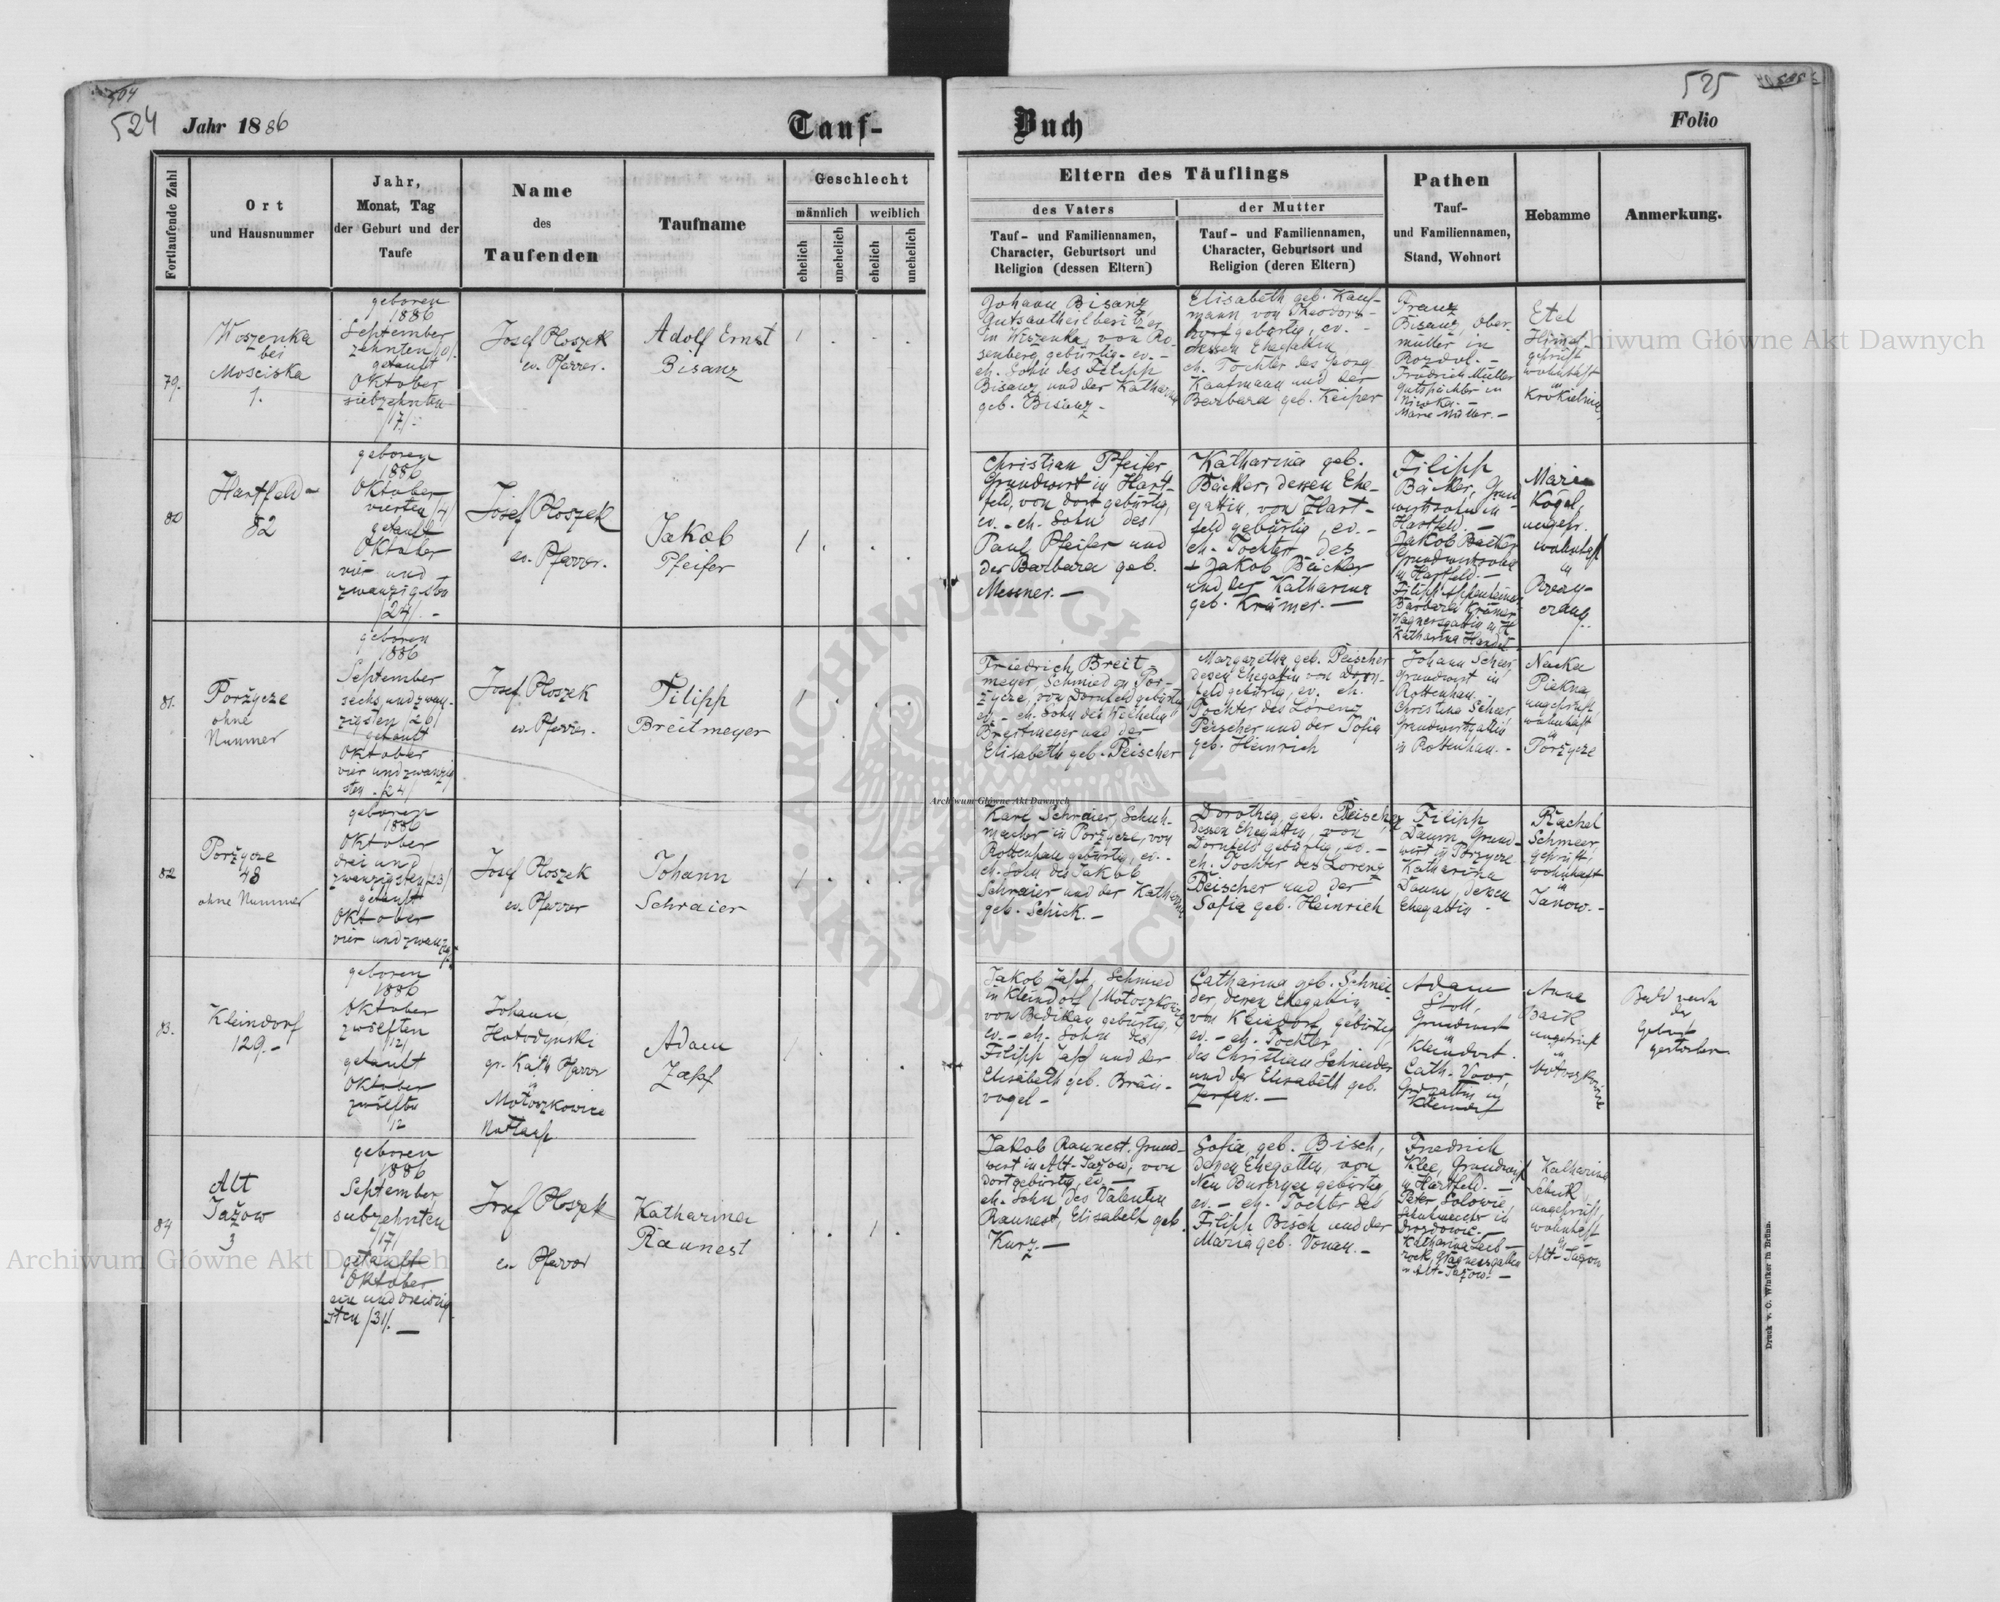 504
524
Jahr 1886
Tauf-
Fortlaufende Zahl
Ort
und Hausnummer
Jahr,
Monat, Tag
der Geburt und der
Taufe
Name
des
Taufenden
Taufname
Geschlecht
männlich
weiblich
ehelich
unehelich
ehelich
unehelich
79.
Woszenka
bei
Mosciska
1.
geboren
1886
September
zehnten
getauft
Oktober
siebzehnten
/17/.
Josef Ploszek
ev. Pfarrer.
Adolf Ernst
Bisanz
1
80
Hartfeld
82
geboren
1886
Oktober
vierten /4/
getauft
Oktober
vier und
zwanzigsten
/24/. -
Josef Ploszek
ev. Pfarrer.
Jakob
Pfeifer
1
81.
Porżycze
ohne
Nummer
geboren
1886
September
sechs und zwan-
zigsten /26/
getauft
Oktober
vier und zwanzig
sten /24/
Josef Ploszek
ev. Pfarrer.
Filipp
Breitmeyer
1
82
Porżycze
48
ohne Nummer
geboren
1886
Oktober
drei und
zwanzigsten /23/
getauft
Oktober
vier und zwanz
Josef Ploszek
ev. Pfarrer
Johann
Schraier
1
83.
Kleindorf
129.-
geboren
1886
Oktober
zwölften
/12/
getauft
Oktober
zwölften
12
Johann
Hotodynski
gr. Kath Pfarrer
in
Motoszkowice
Adam
Zapf
84
Alt
Jażow
3
geboren
1886
September
siebzehnten
/17/
getauft
Oktober
ein und dreisig
sten /31/. -
Josef Ploszek
ev. Pfarrer
Katharina
Raunest
1
525
Buch
Folio
Eltern des Täuflings
des Vaters
Tauf- und Familiennamen,
Character, Geburtsort und
Religion (dessen Eltern)
der Mutter
Tauf- und Familiennamen,
Character, Geburtsort und
Religion (deren Eltern)
Pathen
Tauf-
und Familiennamen,
Stand, Wohnort
Hebamme
Anmerkung.
Johann Bisanz,
Gutsantheilbesitzer
in Woszenka, von Ro-
senberg gebürtig, ev. -
eh. Sohn des Filipp
Bisanz und der Katharina
geb. Bisanz. -
Elisabeth geb. Kauf-
mann von Theodors-
hof gebürtig, ev. -
dessen Ehegattin
eh. Tochter des Georg
Kaufmann und der
Barbara geb. Keiper
Franz
Bisanz, Ober-
müller in
Rozdol. -
Fridrich Müller
Gutspächter in
Marie Müller. -
Etel
geprüft
wohnhaft
in
Christian Pfeifer,
Grundwirt in Hart-
feld, von dort gebürtig,
ev. - eh. Sohn des
Paul Pfeifer und
der Barbara geb.
Messner. -
Katharina geb.
Bäcker, dessen Ehe-
gattin, von Hart-
feld gebürtig, ev. -
eh. Tochter des
+ Jakob Bäcker
und der Katharina
geb. Krämer. -
Filipp
Bäcker, Grund-
wirtssohn in
Hartfeld. -
Jakob Bäcker
Grundwirtssohn
in Hartfeld. -
Barbara Krämer
Wagnersgattin in H
Katharina Handel.
Maria
Kogel,
ungepr.
wohnhaft
in
Friedrich Breit-
meyer, Schmied in Por-
życze, von Dornfeld gebürtig
ev. - eh. Sohn des Wilhelm
Breitmeyer und der
Elisabeth geb. Peischer
Margaretha geb. Peischer
dessen Ehegattin von Dorn-
feld gebürtig, ev. eh.
Tochter des Lorenz
Peischer und der Sofia
geb. Heinrich
Johann Scheer
Grundwirt in
Rottenhan.
Christina Scheer
Grundwirtsgattin
in Rottenhan. -
Naska
Piekna,
ungeprüft,
wohnhaft
in
Porżycze
Karl Schraier, Schuh-
macher in Porżycze, von
Rottenhan gebürtig, ev. -
eh. Sohn des Jakob
Schraier und der Katharina
geb. Schick. -
Dorothea, geb. Peischer
dessen Ehegattin, von
Dornfeld gebürtig, ev. -
eh. Tochter des Lorenz
Beischer und der
Sofia geb. Heinrich
Filipp
Daum, Grund-
wirt in Porzycze
Katharina
Daum, dessen
Ehegattin -
Rachel
Schmeer,
geprüft,
wohnhaft
in
Janow. -
Jakob Zapf, Schmied
in Kleindorf /Motoszkowice/
gebürtig,
ev. - eh. Sohn des
Filipp Zapf und der
Elisabeth geb. Bräu-
vogel -
Catharina geb. Schnei-
der, deren Ehegattin
von Kleindorf, gebürtig,
ev. - eh. Tochter
des Christian Schneider
und der Elisabeth geb.
Adam
Stoll,
Grundwirt
in
Kleindorf.
Cath.
Kleindorf
Anna
ungeprüft
in
Motoszkowice
Bald nach
der
Geburt
gestorben.
Jakob Raunest, Grund-
wirt in Alt-Jażow, von
dort gebürtig, ev. -
eh. Sohn des Valentin
Raunest, Elisabeth geb.
Kurz. -
Sofia, geb. Bisch,
dessen Ehegattin, von
Neu gebürtig,
ev. - eh. Tochter des
Filipp Bisch und der
Maria geb. Vonau. -
Friedrich
Klee, Grundwirt
in Hartfeld. -
Peter
in
Katharina
in Alt-Jażow. -
Katharina
ungeprüft,
wohnhaft
in
Alt-Jażow
Druck v. C. Winiker in Brünn.
Archiwum Główne Akt Dawnych
Archiwum Główne Akt Dawnych
Archiwum Główne Akt Dawnych
ARCHIWUM GŁÓWNE AKT DAWNYCH